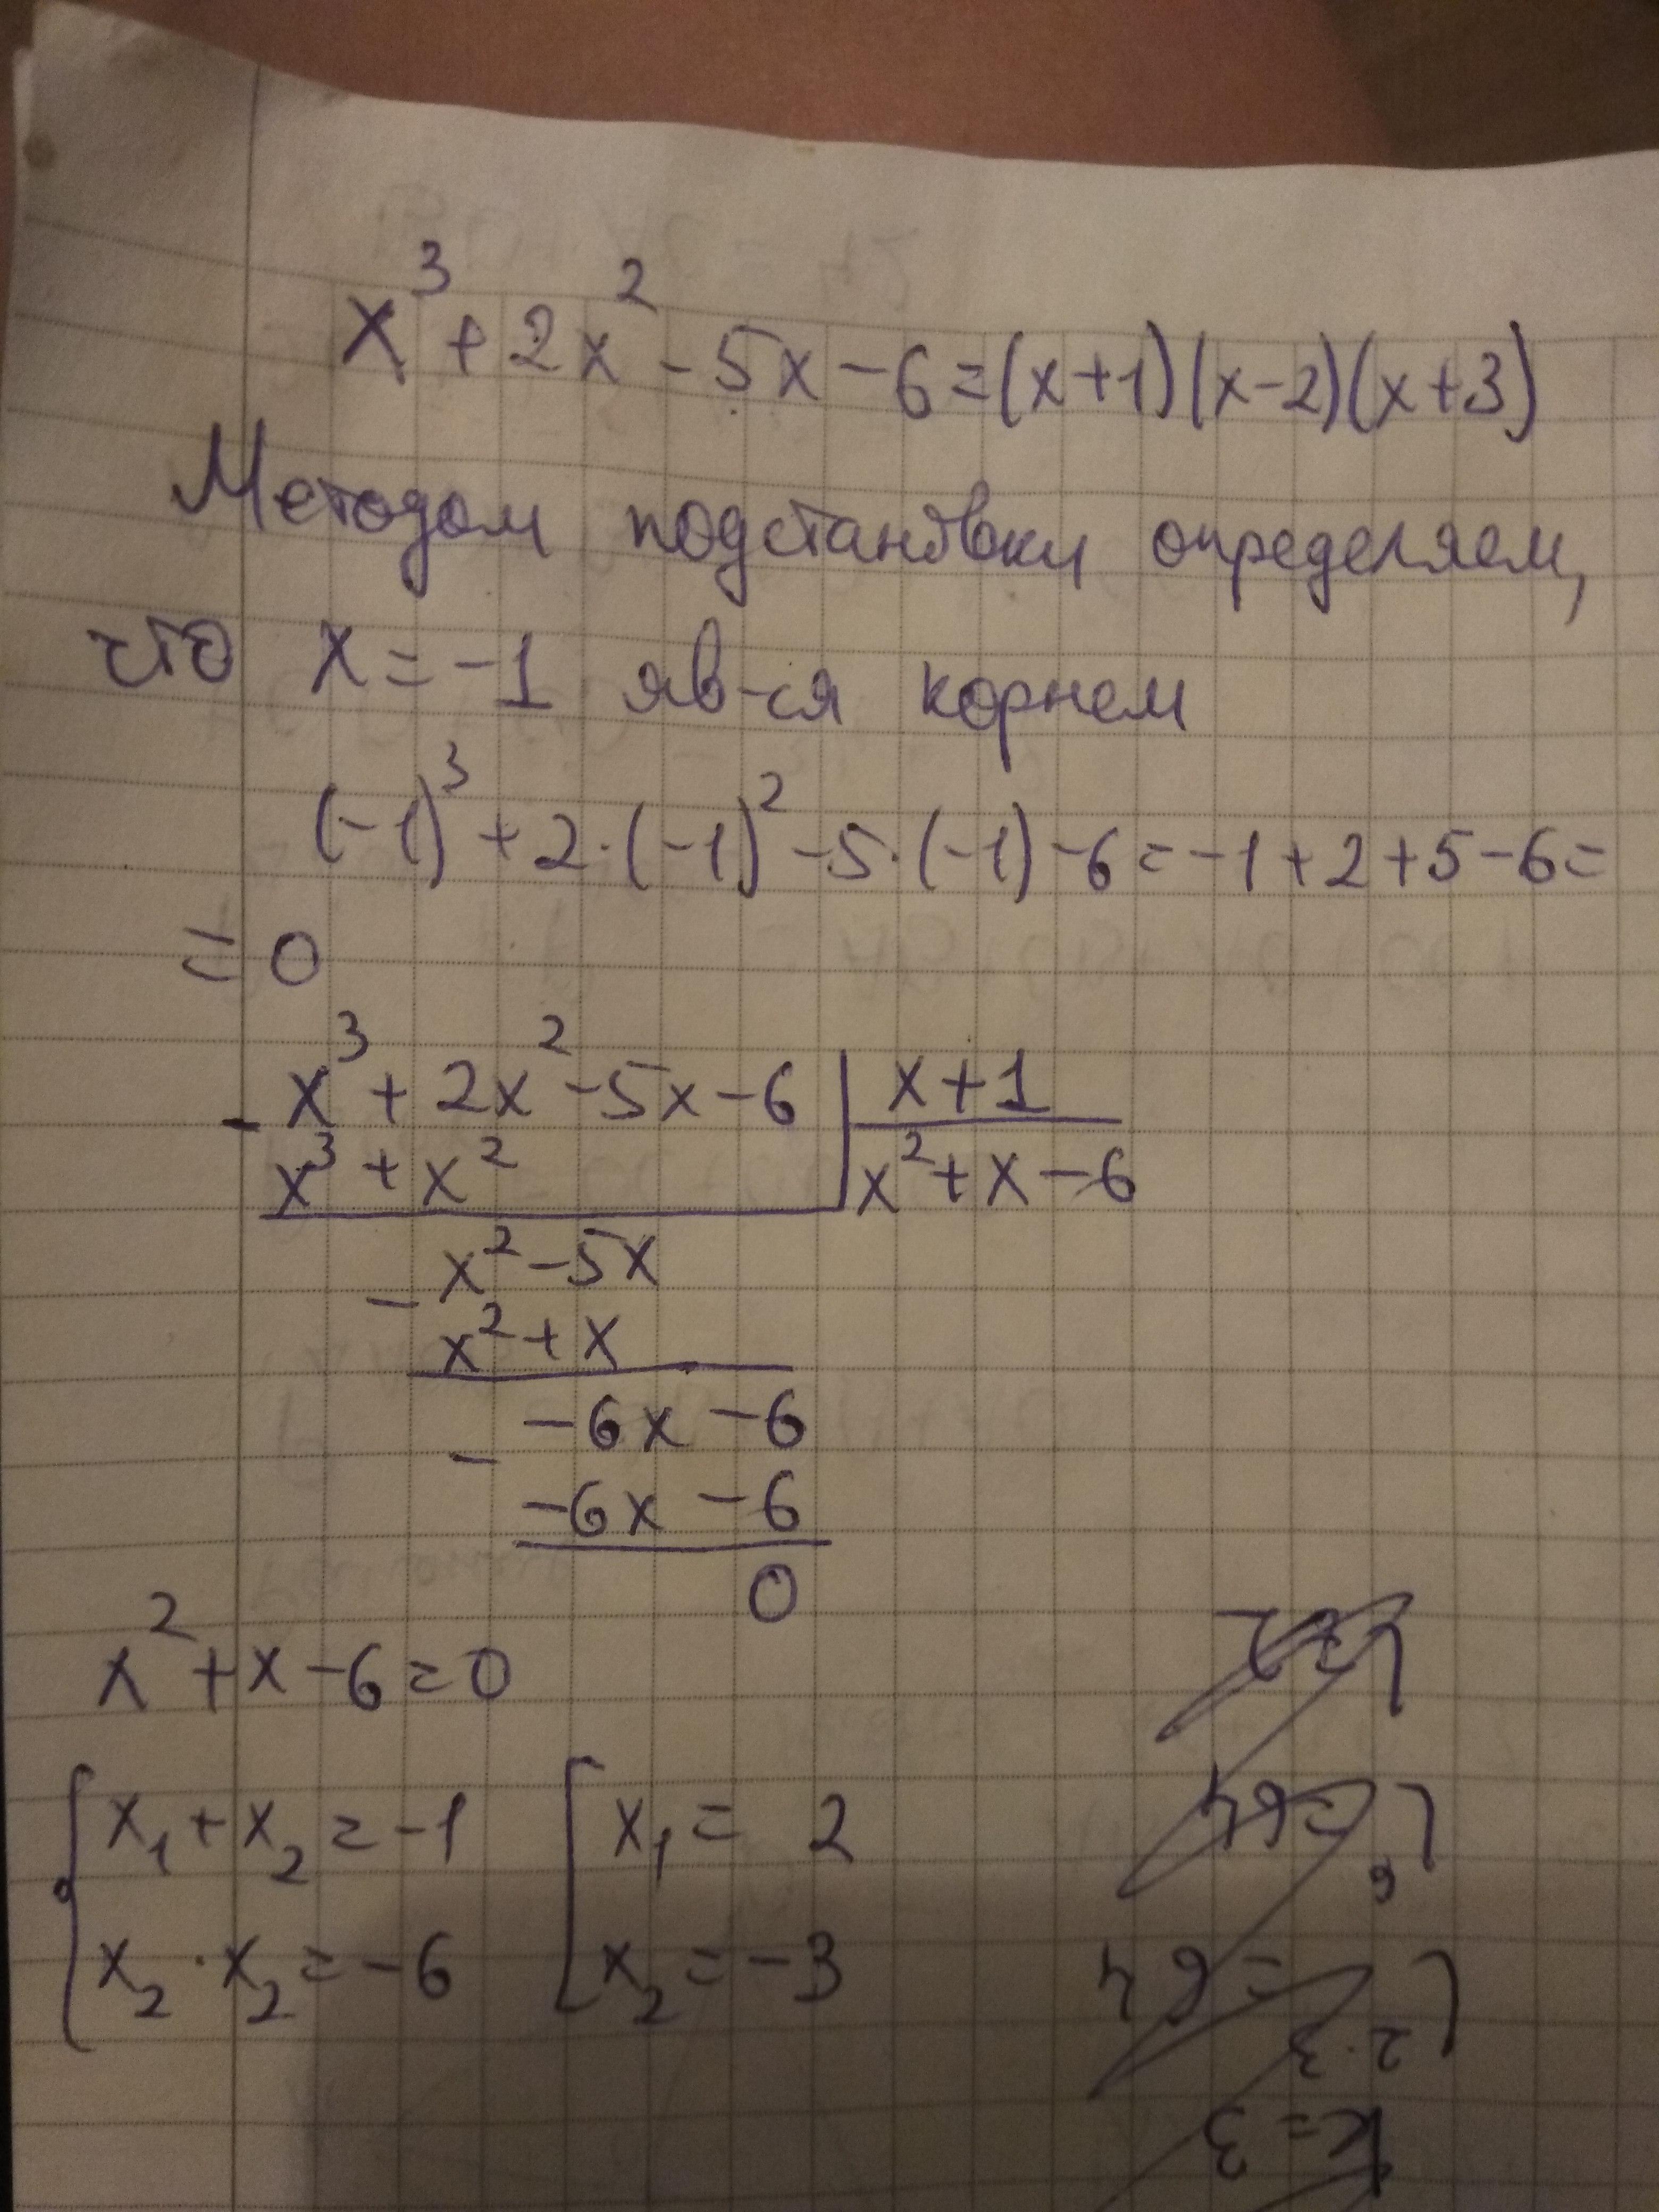 x³ + 2x² - 5x - 6 = (x+1)(x-2)(x+3)
Методом подстановки определяем,
что x = -1 яв-ся корнем
(-1)³ + 2·(-1)² - 5·(-1) - 6 = -1 + 2 + 5 - 6 =
= 0
- x³ + 2x² - 5x - 6 | x + 1
x³ + x² | x² + x - 6
- x² - 5x
x² + x
- -6x - 6
-6x - 6
0
x² + x - 6 = 0
{ x₁ + x₂ = -1 [ x₁ = 2
x₂ · x₂ = -6 x₂ = -3
k = 3